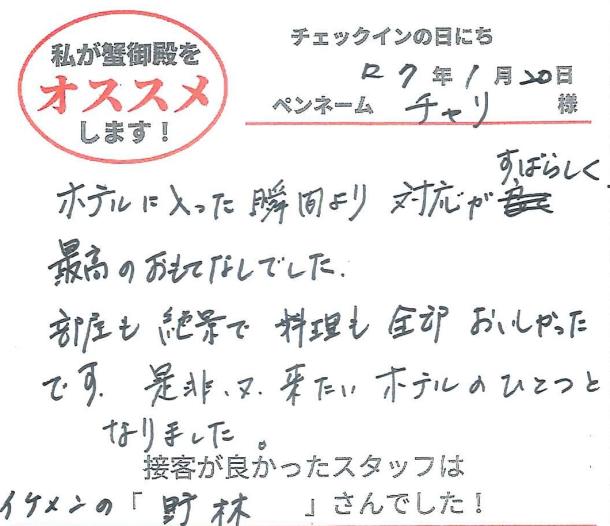 私が蟹御殿を
オススメ
します!
チェックインの日にち
R7年1月20日
ペンネーム チャリ 様
すばらしく
ホテルに入った瞬間より 対応が
最高のおもてなしでした.
部屋も絶景で 料理も 全部 おいしかった
です. 是非、又 来たい ホテルのひとつと
なりました。
接客が良かったスタッフは
イケメンの「野林」さんでした!